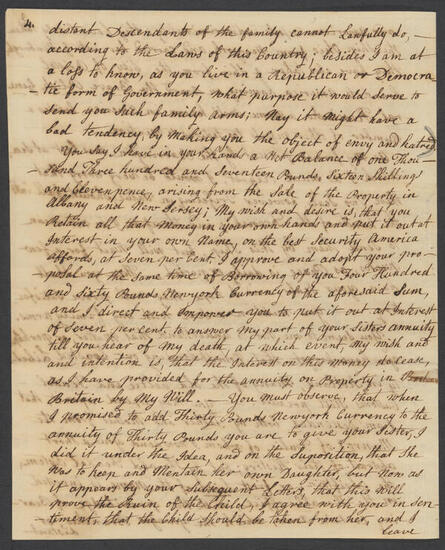 4.
distant Descendants of the family cannot Lawfully do, —
according to the Laws of this Country; besides I am at
a loss to know, as you live in a Republican or Democra
tic form of Government, what purpose it would serve to
send you Such family arms; Nay it might have a
bad tendency, by making you the object of envy and hatred
You say I have in your hands a Net Balance of one Thou
sand Three hundred and Seventeen Pounds, Sixteen Shillings
and Eleven pence, arising from the Sale of the Property in
Albany and New Jersey; My wish and desire is, that you
Retain all that Money in your own hands and put it out at
Interest in your own Name, on the best Security America
affords, at Seven per Cent. I approve and adopt your pro-
posal at the same time of Borrowing of you Four Hundred
and Sixty Pounds Newyork Currency of the aforesaid Sum,
and I direct and Empower you to put it out at Interest
of Seven per cent. to answer My part of your Sisters annuity
till you hear of My death, at which event, My wish and
and intention is, that the Interest on this Money do cease,
as I have provided for the annuity on Property in
Britain by My Will. — You must observe, that when
I promised to add Thirty Pounds Newyork Currency to the
annuity of Thirty Pounds you are to give your Sister, I
did it under the Idea, and on the Suposition, that She
Was to keep and Mentain her own Daughter, but Now as
it appears by your Subsequent Letters, that this Will
prove the Ruin of the Child, I agree with you in Sen-
timent, that the Child Should be taken from her, and I
leave